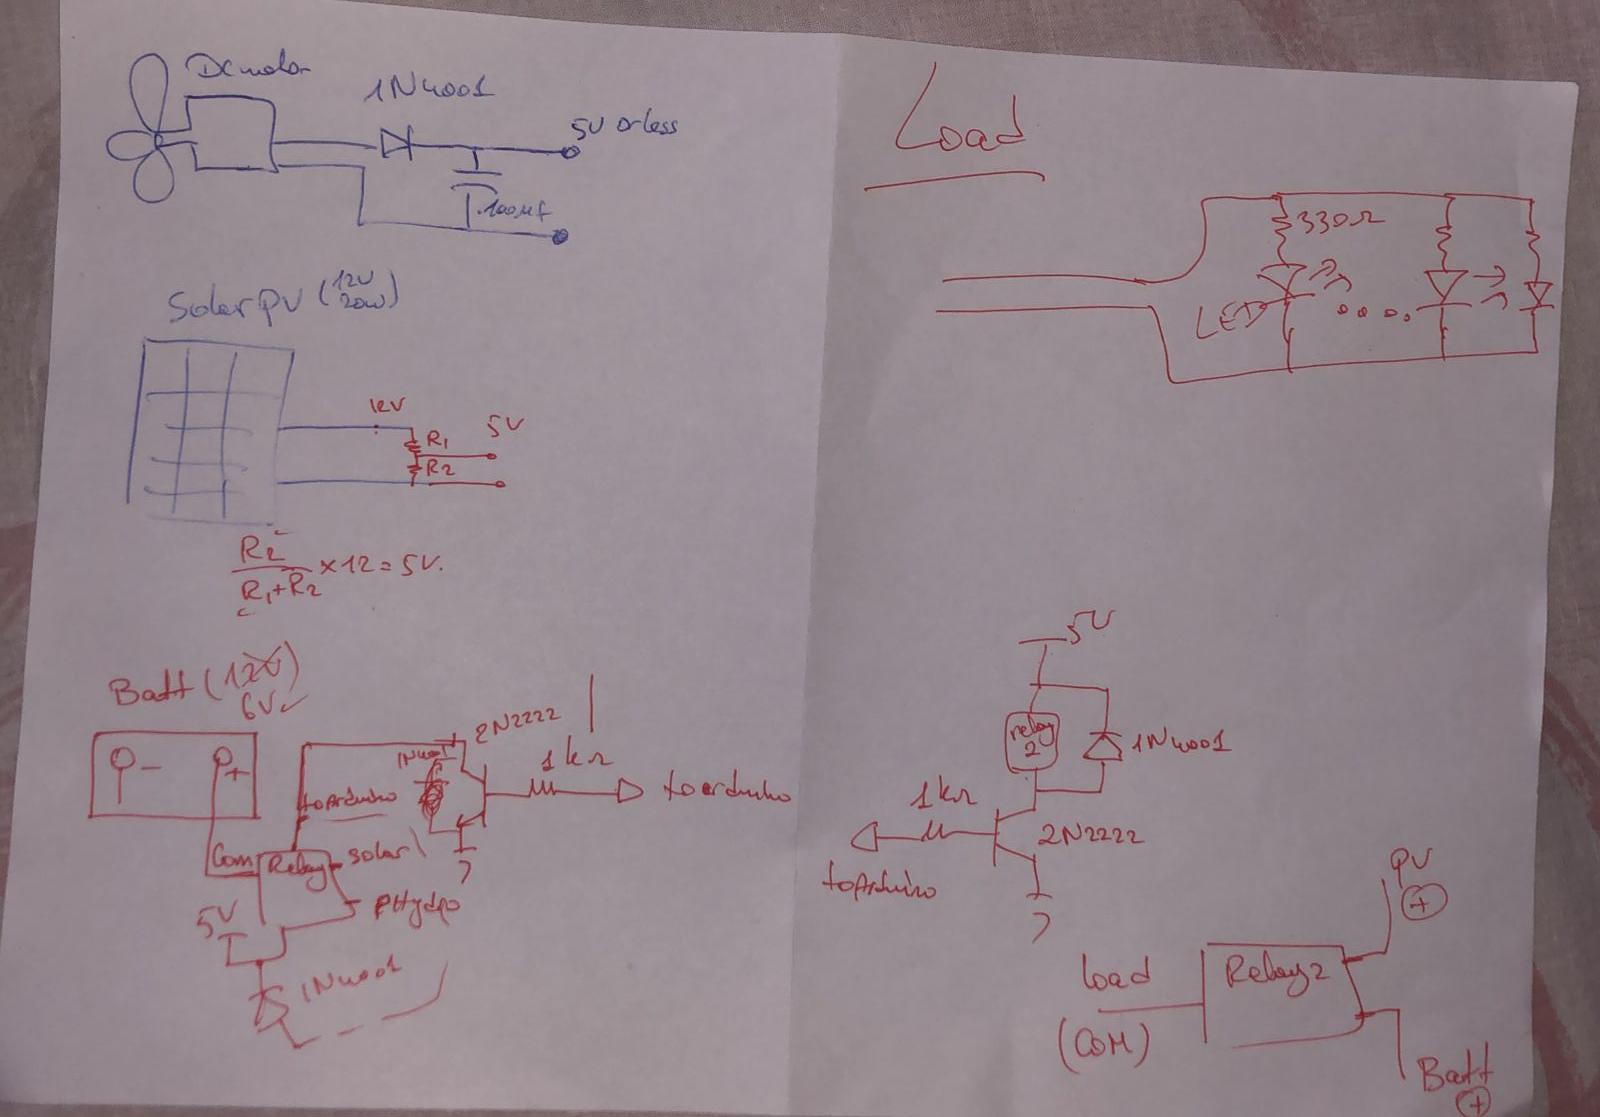 DC motor
1N4001
5V or less
100μf
Solar PV (12V
20W)
12V
R1
5V
R2
R2
R1+R2
×12=5V.
Batt (12V)
6V
-
+
2N2222
1N4001
1kΩ
to Arduino
to arduino
Com
Relay
solar
PHydro
5V
1N4001
Load
330Ω
LED
5V
relay
2
1N4001
1kΩ
2N2222
to Arduino
PV
+
load
(COM)
Relay 2
Batt
+